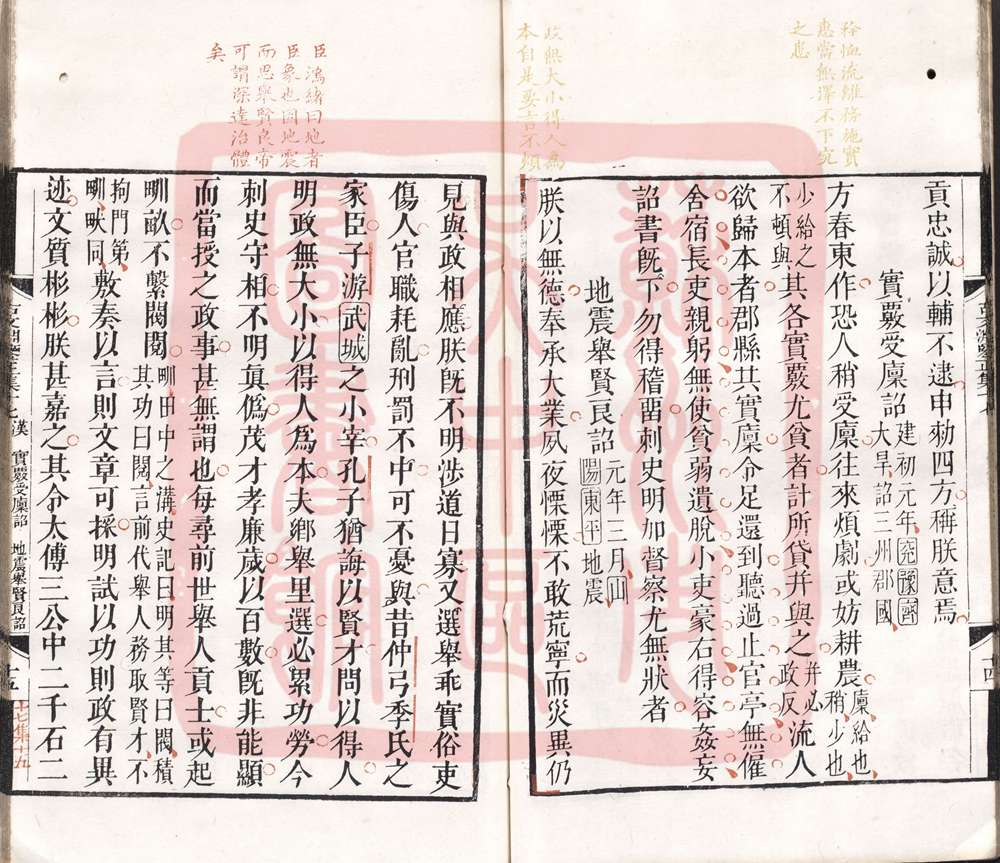 矜恤流離務施實
惠當無澤不下究
之患
政無大小得人為
本自是要言不煩
貢忠誠以輔不逮申勑四方稱朕意焉
實覈受廩詔
建初元年兖豫齊
大旱詔三州郡國
方春東作恐人稍受廩往來煩劇或妨耕農
廩給也
稍少也
少給之
不頓與
其各實覈尤貧者計所貸并與之
并必
政反
流人
欲歸本者郡縣其實廩令足還到聽過止官亭無僱
舍宿長吏親躬無使貧弱遺脫小吏豪右得容姦妄
詔書旣下勿得稽畱刺史明加督察尤無狀者
地震舉賢良詔
元年三月山
陽東平地震
朕以無德奉承大業夙夜慄慄不敢荒寧而災異仍
十四
臣鴻緒曰地者
臣象也因地震
而思舉賢良帝
可謂深達治體
矣
見與政相應朕旣不明涉道日寡又選舉乖實俗吏
傷人官職耗亂刑罰不中可不憂與昔仲弓季氏之
家臣子游武城之小宰孔子猶誨以賢才問以得人
明政無大小以得人爲本夫鄉舉里選必累功勞今
刺史守相不明眞僞茂才孝廉歲以百數旣非能顯
而當授之政事甚無謂也每尋前世舉人貢士或起
甽畝不繫閥閱
甽田中之溝史記曰明其等曰閥積
其功曰閱言前代舉人務取賢才不
拘門第
甽畎同
敷奏以言則文章可採明試以功則政有異
迹文質彬彬朕甚嘉之其令太傅三公中二千石二
漢 實覈受廩詔 地震舉賢良詔
十五
十七集十五